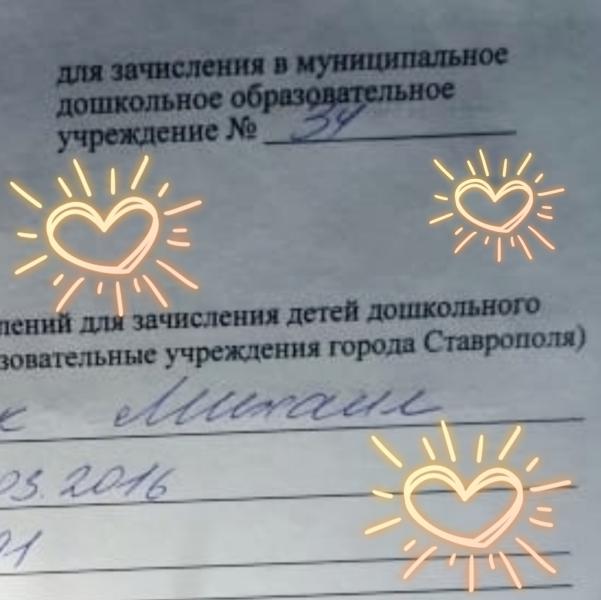 для зачисления в муниципальное
дошкольное образовательное
учреждение № 34
лений для зачисления детей дошкольного
зовательные учреждения города Ставрополя)
к Михаил
03.2016
01